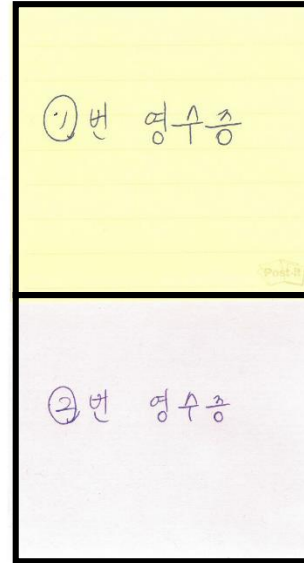 ①번 영수증
Post-it
②번 영수증